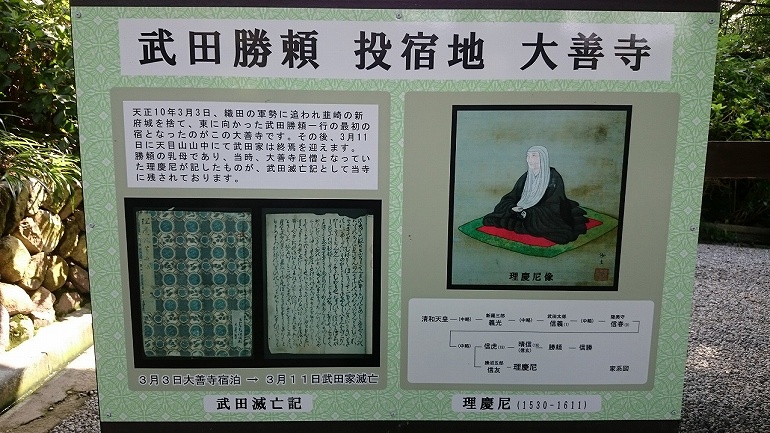 武田勝頼 投宿地 大善寺
天正10年3月3日、織田の軍勢に追われ韮崎の新
府城を捨て、東に向かった武田勝頼一行の最初の
宿となったのがこの大善寺です。その後、3月11
日に天目山山中にて武田家は終焉を迎えます。
勝頼の乳母であり、当時、大善寺尼僧となってい
た理慶尼が記したものが、武田滅亡記として当寺
に残されております。
3月3日大善寺宿泊 → 3月11日武田家滅亡
武田滅亡記
理慶尼像
清和天皇 (中略) 新羅三郎 義光 (中略) 武田太郎 信義(1) (中略) 信春
(中略) 信虎 晴信 (信玄) 勝頼 信勝
勝沼五郎 信友 理慶尼 家系図
理慶尼(1530-1611)